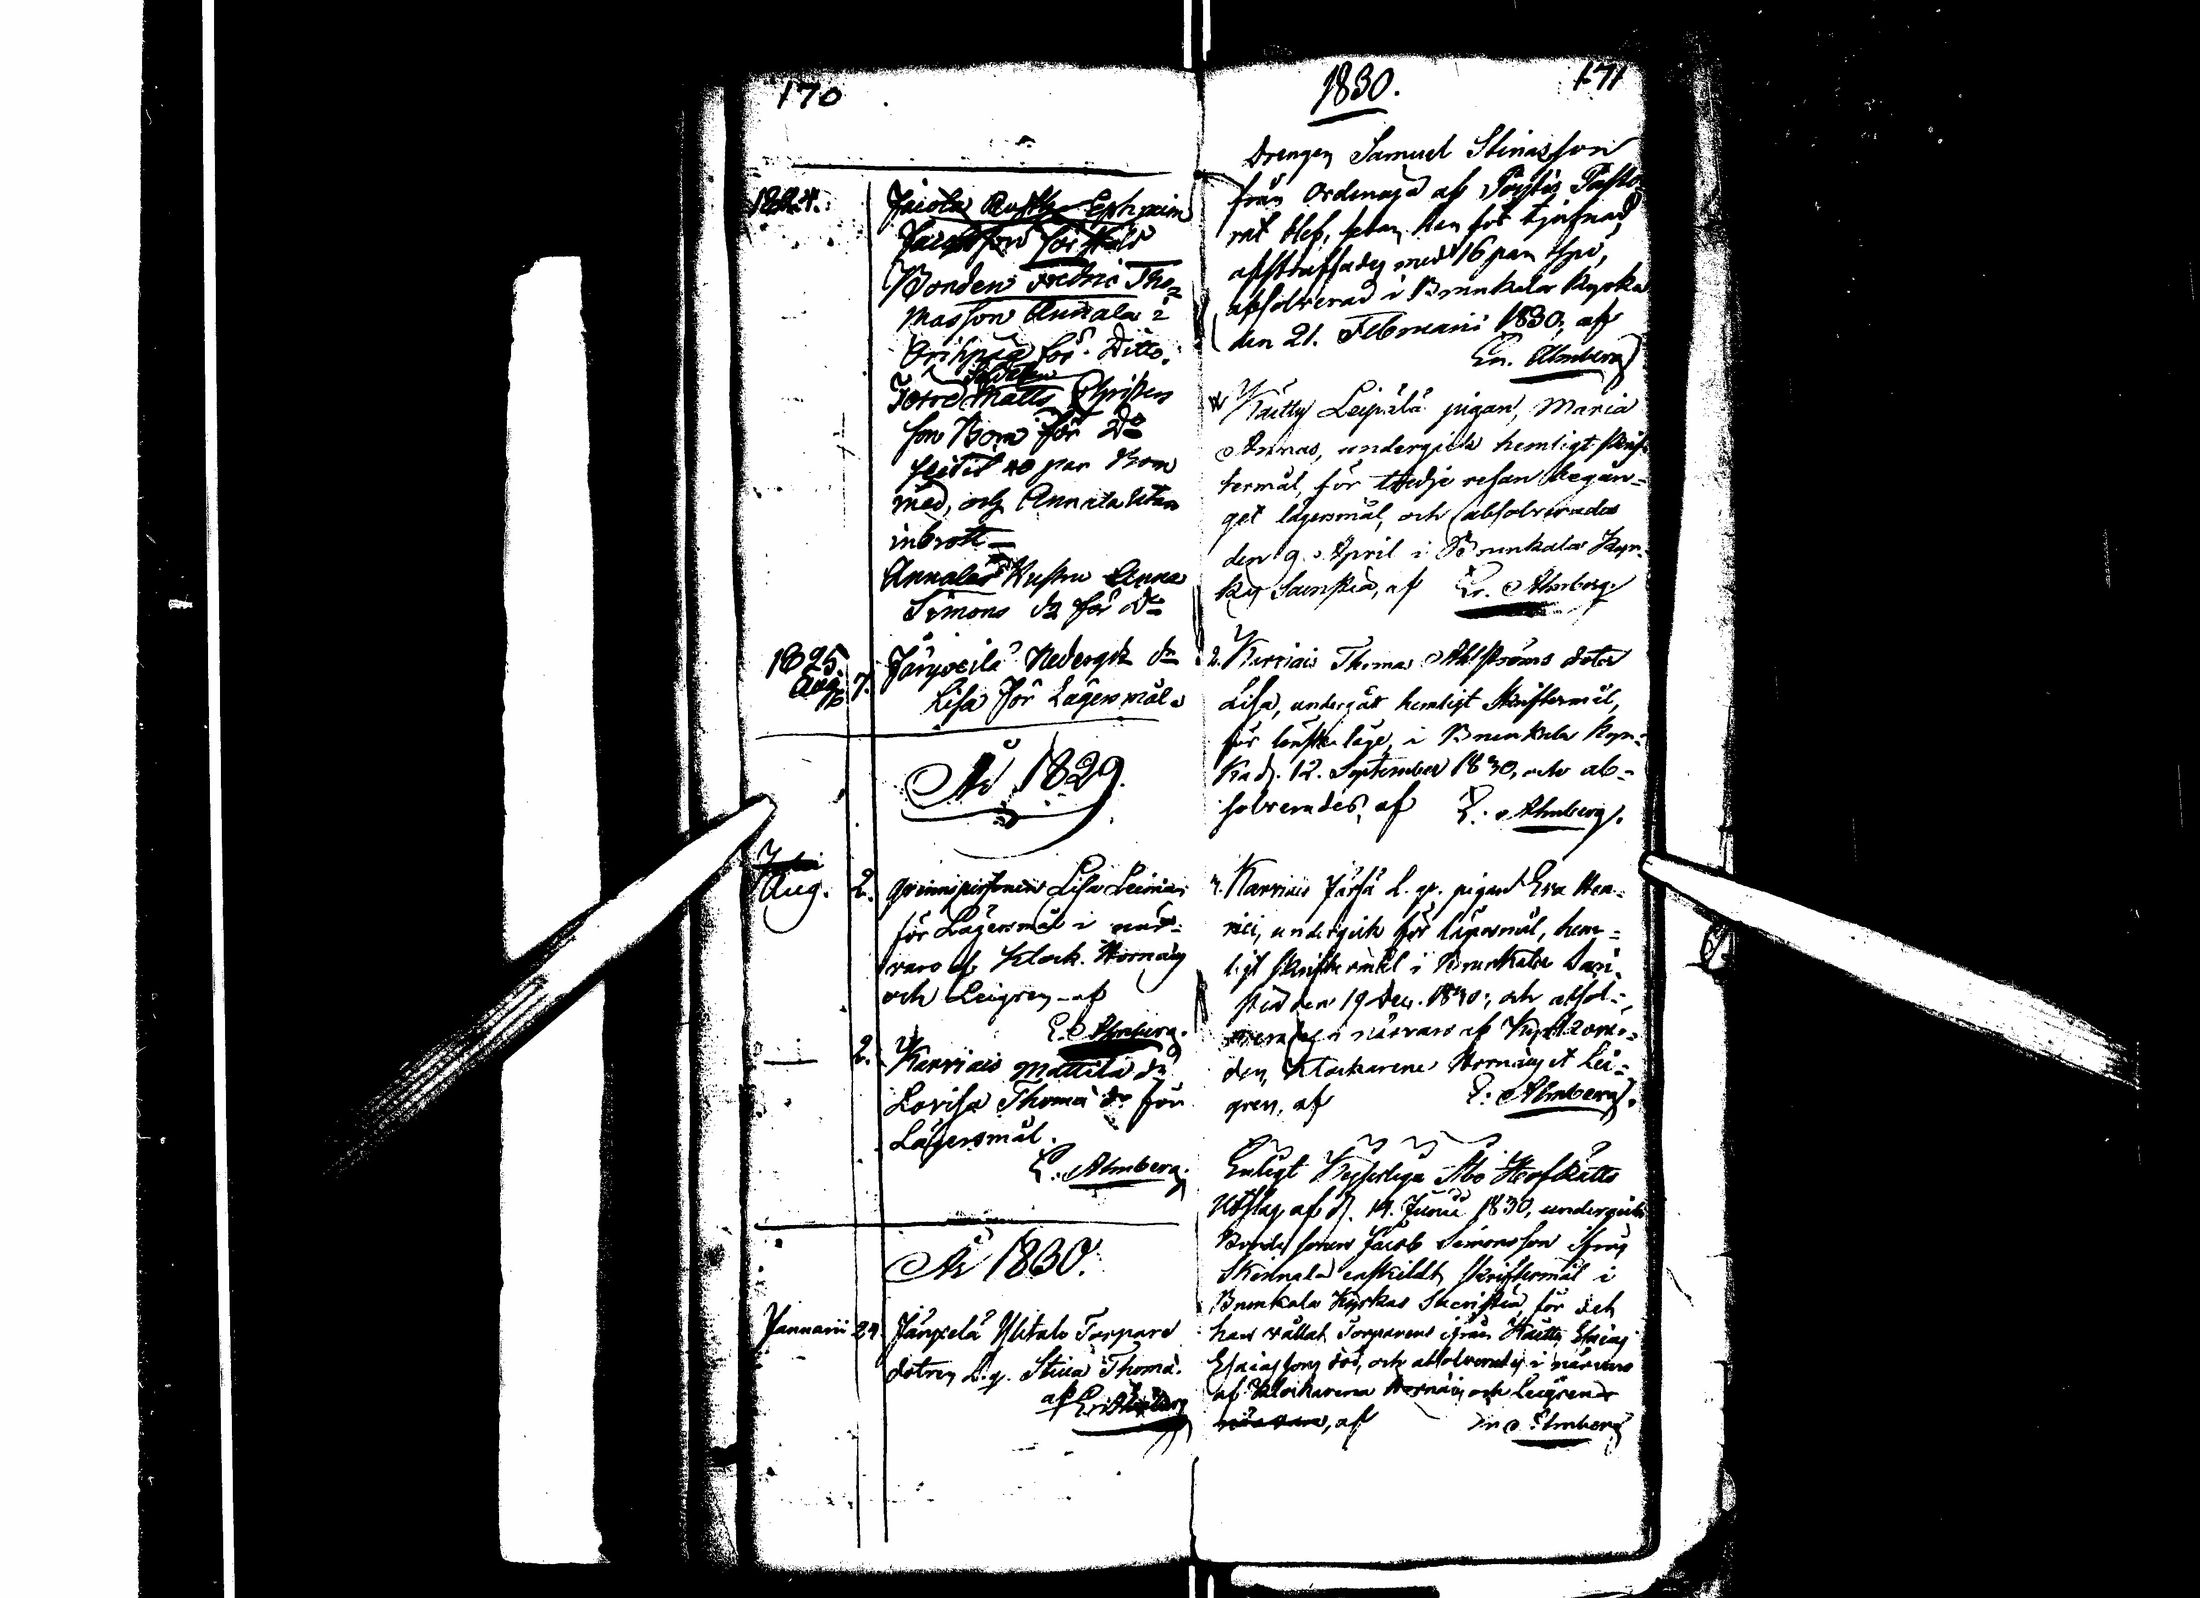 170
1824.
Bonden Fredric Tho-
masson Annala i
Orihpää för Ditto.
Torp Soldaten Matts Christers
son Bom för Do
slitit 40 par Bom
med, och Annala utan
inbrott
Annalas Hustru Anna
Simons dr för Do
1825.
Aug. 7. Järfvelä Nedergå dr
Lisa för Lägersmål.
År 1829.
Aug. 2. Qvinnspersonen Lisa
för Lägersmål i när-
varo af Klock. Hornæus
och Leigren af
E. Almberg.
2. Karviais Mattila dr
Lovisa Thomæ dr för
Lägersmål.
E. Almberg.
År 1830.
Januarii 24 Järvelä Ylitalo Torpare
dotren L. q. Stina Thomæ.
af Eric Almberg
1830.
171
Drengen Samuel Stinasson
från Ordenoja af Pöytis Pasto-
rat blef, sedan han för tjufnad
afstraffades med 16 par spö,
absolverad i Brunkala Kyrka
den 21. Februarii 1830, af
Er. Almberg
Käetty Leipälä pigan, Maria
Annas, undergick hemligt skrif-
termål, för tredje resan begån-
get lägersmål, och absolverades
den 9. April i Brunkala Kyr-
kas Sacristia, af Er. Almberg
2. Karviais Thomas Ahlströms dotter
Lisa, undergått hemligt Skriftermål,
för lönskaläge, i Brunkala Kyr-
ka d. 12. September 1830, och ab-
solverades, af E. Almberg.
Karviais Järfä l. q. pigan Eva Hen-
rici, undergick för lägersmål, hem-
ligt skriftermål i Brunkala Sacri-
stia den 19 Dec. 1830, och absol-
verades i närvaro af Kyrkovär-
den, Klockarene Hornæus et Lei-
gren, af E. Almberg.
Enligt Kejserliga Åbo HofRätts
Utslag af d. 14. Junii 1830, undergick
Bondesonen Jacob Simonsson ifrån
Skinnala enskildt skriftermål i
Brunkala Kyrkas Sacristia, för det
han vållat Torparens ifrån Käetty Esaias
Esaiassons död, och absolverades i närvaro
af Klockarena Hornæus och Leigrens
närvaro, af Er. Almberg